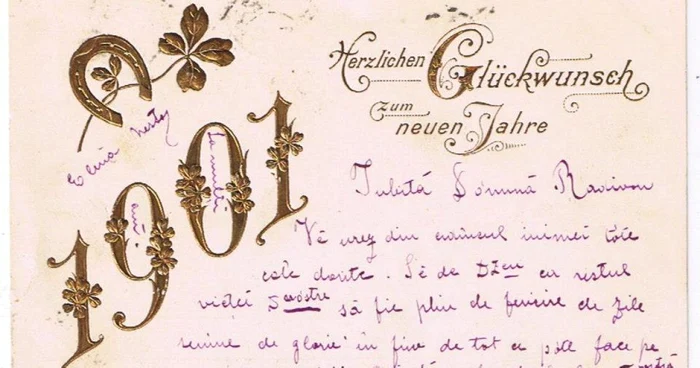 Herzlichen Glückwunsch
zum
neuen Jahre
1901
La mulți
ani
Iubită Domnă
Vĕ urez din adâncul inimei tóte
cele dorite. Să dea Dzeu ca restul
vieței Dvóstre să fie plin de fericire de zile
senine de glorie în fine de tot ce póte face pe